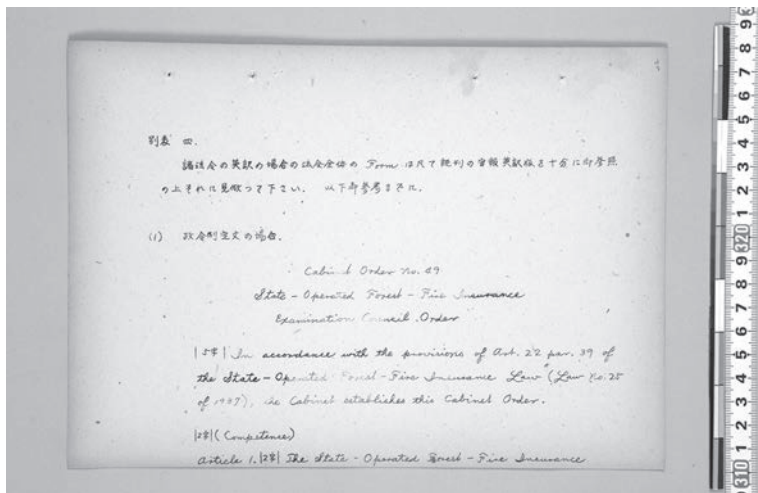 別表 四.
諸法令の英訳の場合の法令全体の Form は凡て既刊の官報英訳版を十分に御参照
の上それに見倣つて下さい. 以下御参考までに.
(1) 政令制定文の場合.
Cabinet Order No. 49
State - Operated Forest - Fire Insurance
Examination Council Order
|5字| In accordance with the provisions of Art. 22 par. 39 of
the State - Operated Forest - Fire Insurance Law (Law No. 25
of 1937), the Cabinet establishes this Cabinet Order.
|2字| (Competence)
Article 1. |2字| The State - Operated Forest - Fire Insurance
9 8 7 6 5 4 3 2 1 320 9 8 7 6 5 4 3 2 1 310